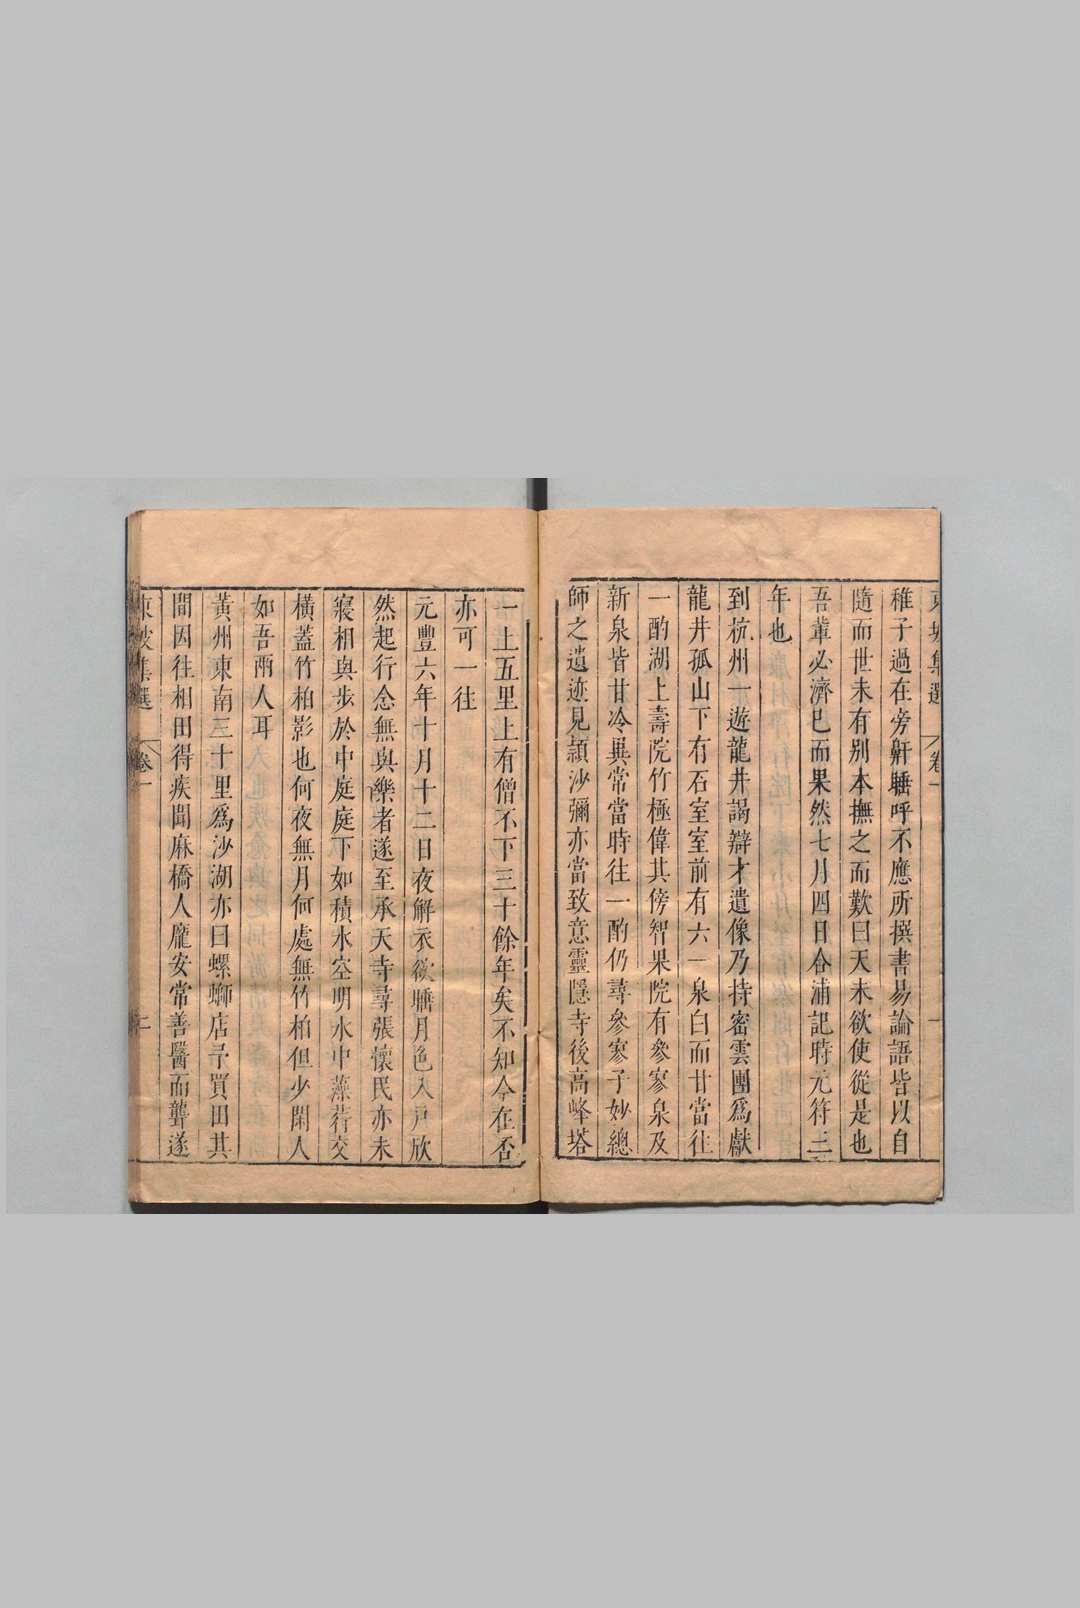 東坡集選 卷一 一
稚子過在旁鼾睡呼不應所撰書易論語皆以自
隨而世未有别本撫之而歎曰天未欲使從是也
吾軰必濟已而果然七月四日合浦記時元符三
年也
到杭州一遊龍井謁辯才遺像乃持密雲團爲獻
龍井孤山下有石室室前有六一泉白而甘當往
一酌湖上壽院竹極偉其傍智果院有參寥泉及
新泉皆甘冷異常當時往一酌仍尋參寥子妙總
師之遺迹見頴沙彌亦當致意靈隱寺後高峰塔
一上五里上有僧不下三十餘年矣不知今在否
亦可一往
元豐六年十月十二日夜解衣欲睡月色入戸欣
然起行念無與樂者遂至承天寺尋張懷民亦未
寢相與步於中庭庭下如積水空明水中藻荇交
橫蓋竹柏影也何夜無月何處無竹柏但少閑人
如吾兩人耳
黃州東南三十里爲沙湖亦曰螺螄店予買田其
間因往相田得疾聞麻橋人龐安常善醫而聾遂
東坡集選 卷一 二